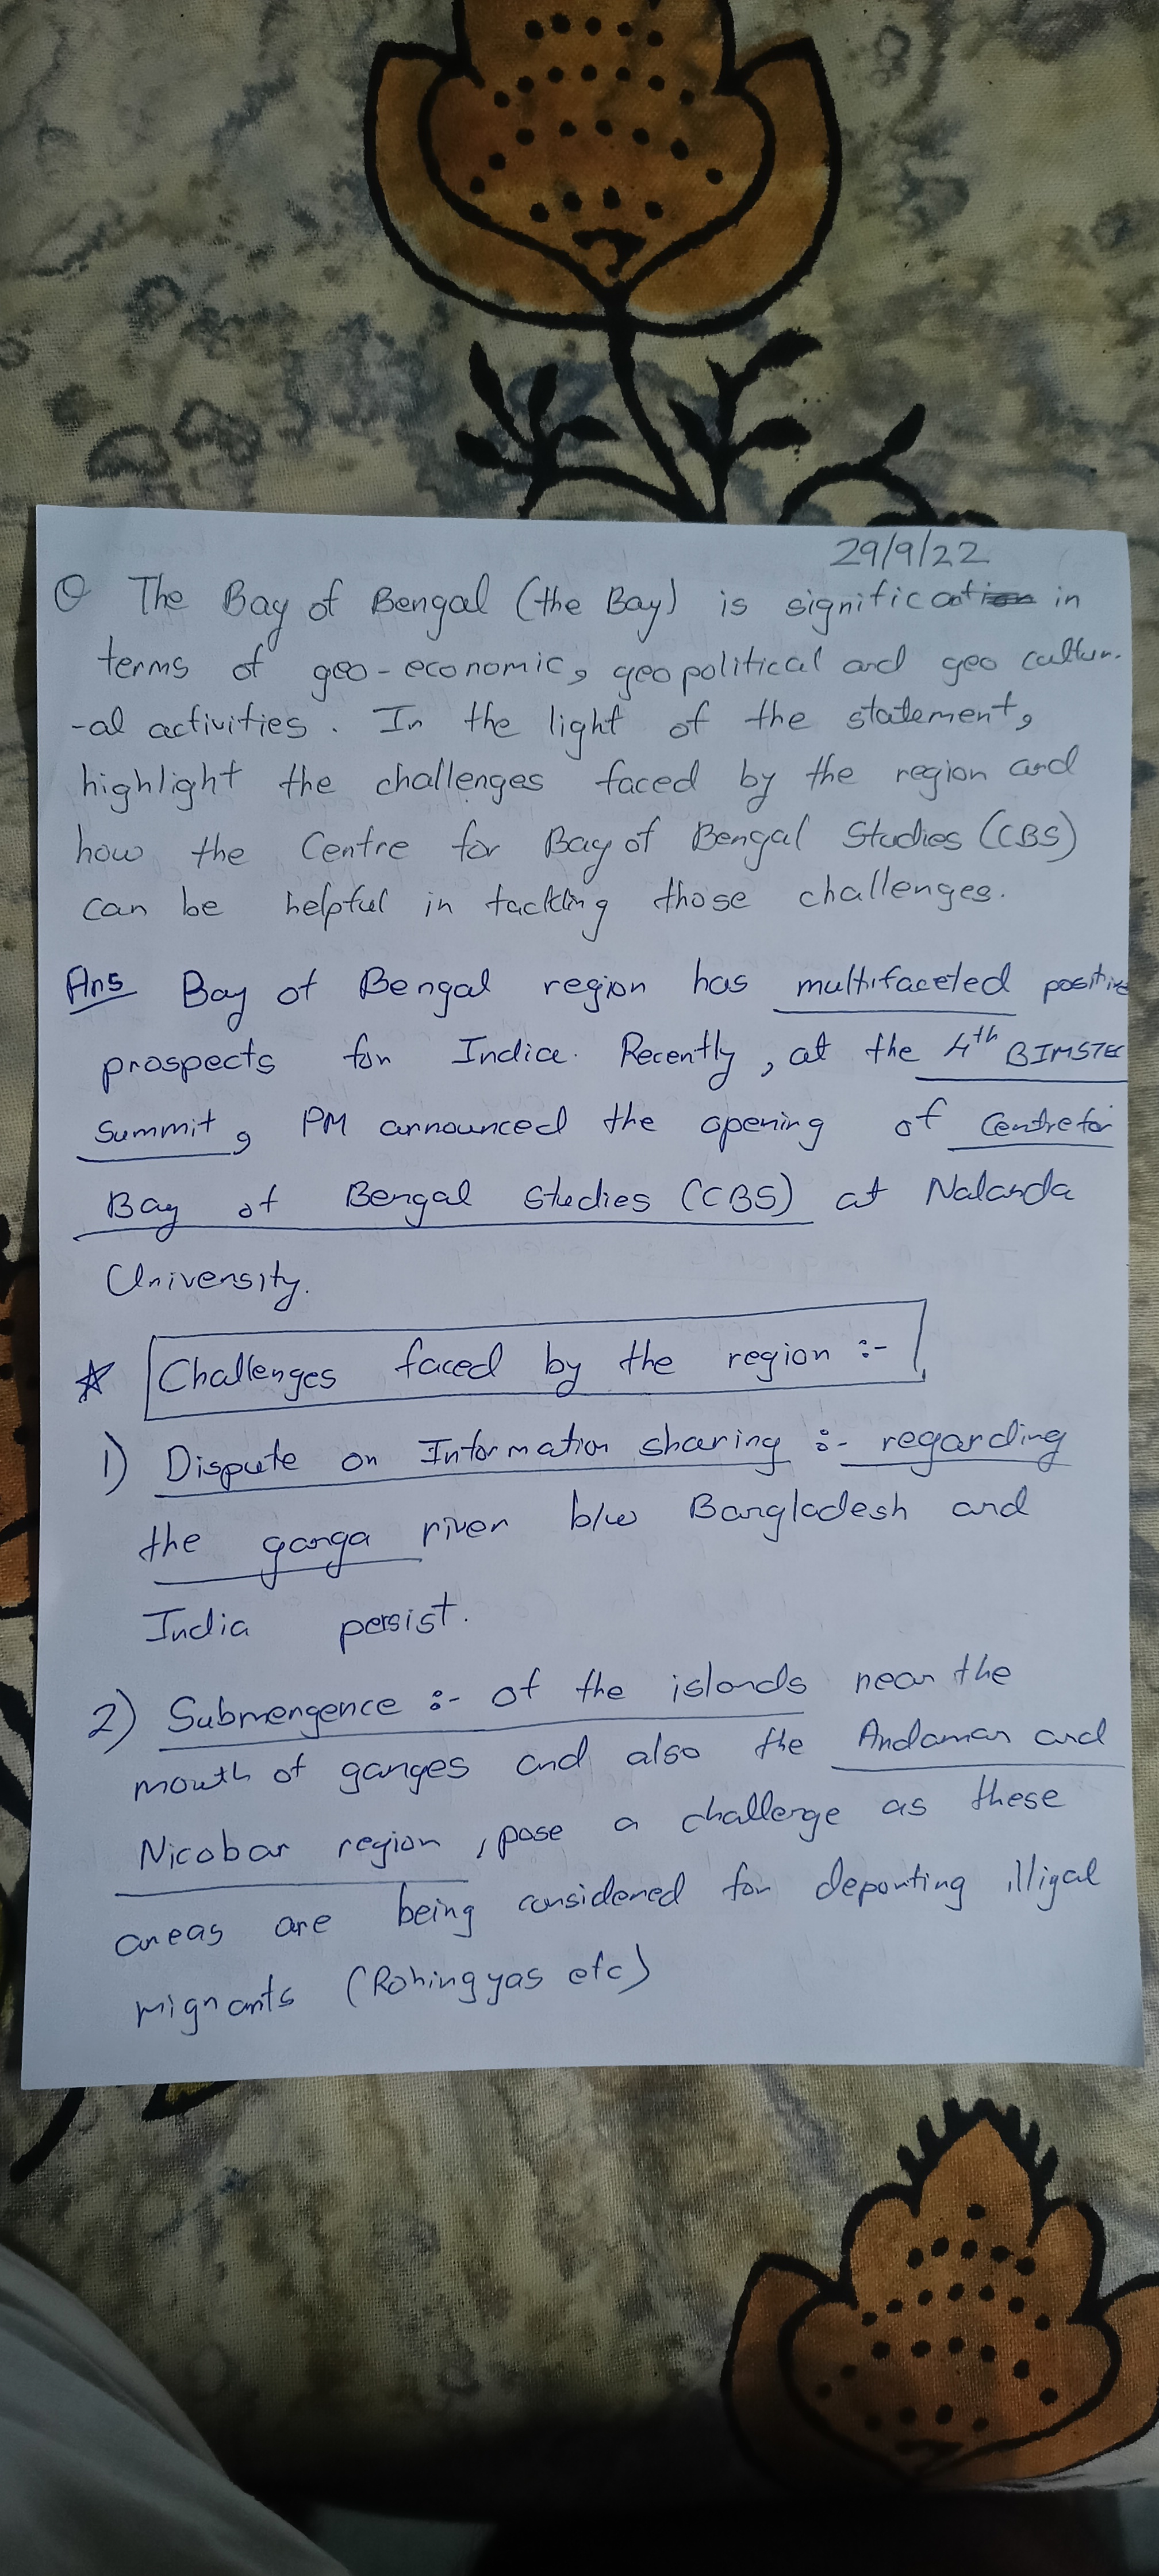 29/9/22
Q The Bay of Bengal (the Bay) is significant in
terms of geo-economic, geopolitical and geo cultur-
-al activities. In the light of the statement,
highlight the challenges faced by the region and
how the Centre for Bay of Bengal Studies (CBS)
can be helpful in tackling those challenges.
Ans Bay of Bengal region has multifaceted positive
prospects for India. Recently, at the 4th BIMSTEC
Summit, PM announced the opening of Centre for
Bay of Bengal Studies (CBS) at Nalanda
University.
☆ Challenges faced by the region :-
1) Dispute on Information sharing :- regarding
the ganga river b/w Bangladesh and
India persist.
2) Submergence :- of the islands near the
mouth of ganges and also the Andaman and
Nicobar region, pose a challenge as these
areas are being considered for deporting illigal
migrants (Rohingyas etc)